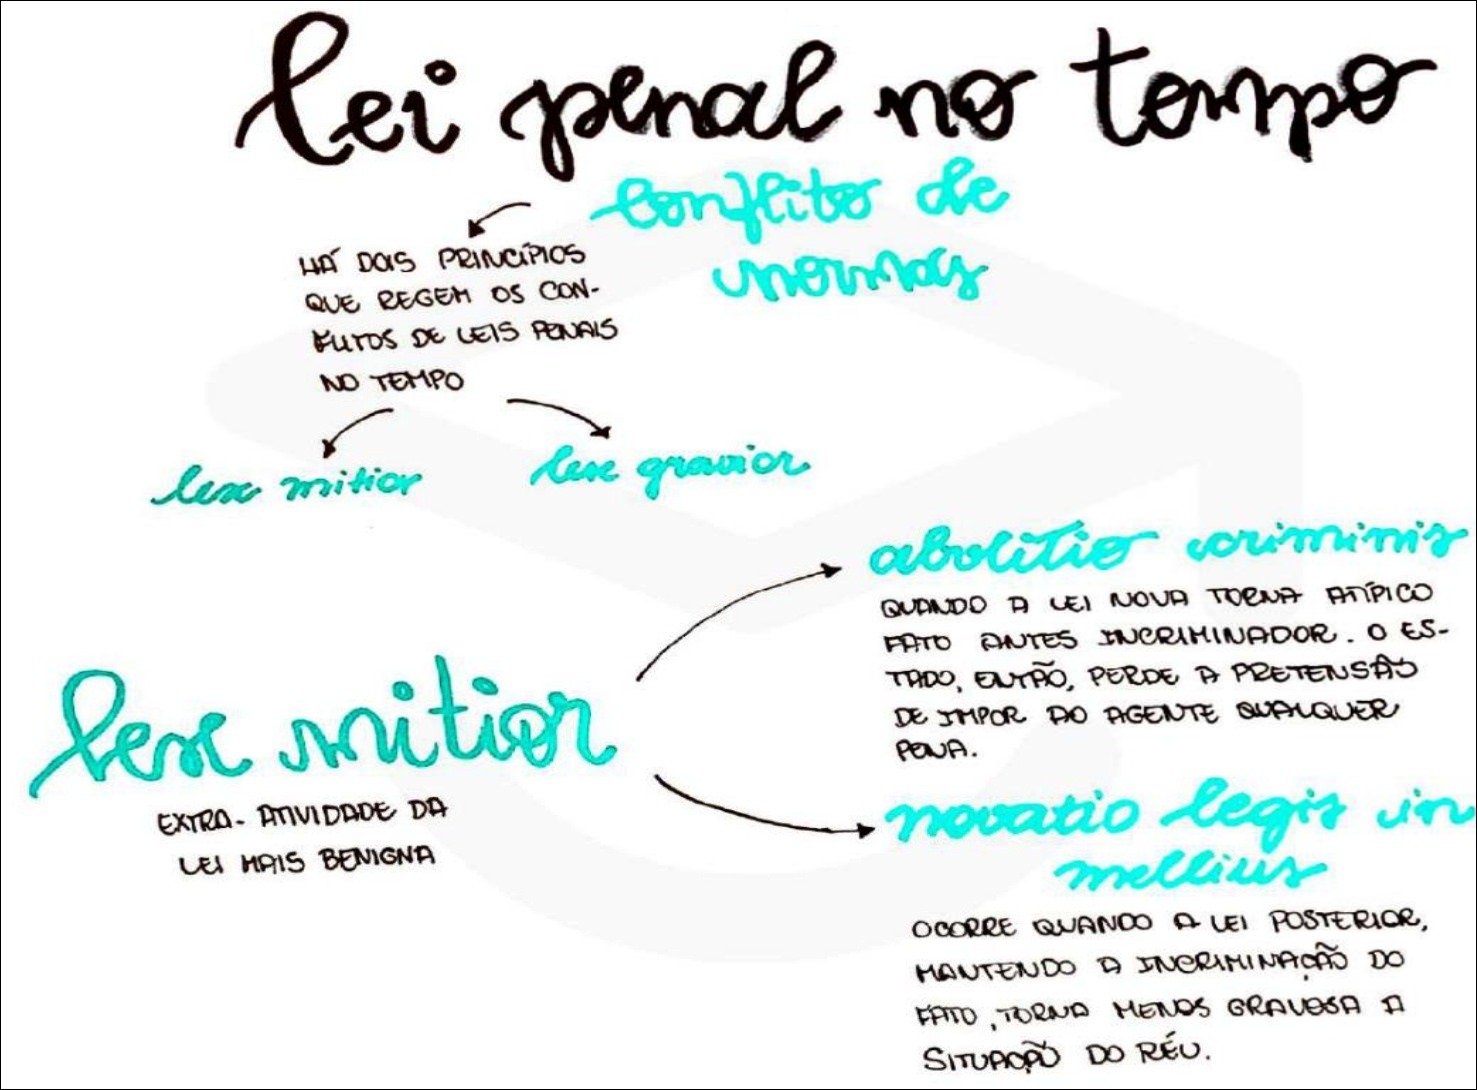 lei penal no tempo
conflito de
normas
HÁ DOIS PRINCÍPIOS
QUE REGEM OS CON-
FLITOS DE LEIS PENAIS
NO TEMPO
lex mitior
lex gravior
lex mitior
EXTRA-ATIVIDADE DA
LEI MAIS BENIGNA
abolitio criminis
QUANDO A LEI NOVA TORNA ATÍPICO
FATO ANTES INCRIMINADOR. O ES-
TADO, ENTÃO, PERDE A PRETENSÃO
DE IMPOR AO AGENTE QUALQUER
PENA.
novatio legis in
mellius
OCORRE QUANDO A LEI POSTERIOR,
MANTENDO A INCRIMINAÇÃO DO
FATO, TORNA MENOS GRAVOSA A
SITUAÇÃO DO RÉU.